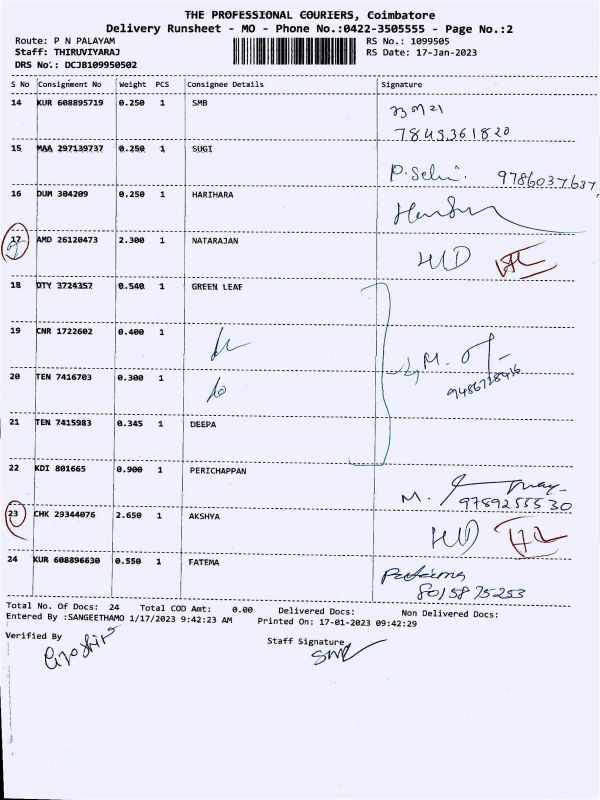 THE PROFESSIONAL COURIERS, Coimbatore
Delivery Runsheet - MO - Phone No.:0422-3505555 - Page No.:2
Route: P N PALAYAM RS No.: 1099505
Staff: THIRUVIYARAJ RS Date: 17-Jan-2023
DRS No.: DCJB109950502
S No Consignment No Weight PCS Consignee Details Signature
14 KUR 608895719 0.250 1 SMB
7843361820
15 MAA 297139737 0.250 1 SUGI
P. Selvi. 9786037637
16 DUM 304209 0.250 1 HARIHARA
17 AMD 26120473 2.300 1 NATARAJAN
18 DTY 3724357 0.540 1 GREEN LEAF
19 CNR 1722602 0.400 1
20 TEN 7416703 0.300 1
21 TEN 7415983 0.345 1 DEEPA
22 KDI 801665 0.900 1 PERICHAPPAN
9789255530
23 CHK 29344076 2.650 1 AKSHYA
24 KUR 608896630 0.550 1 FATEMA
8015875253
Total No. Of Docs: 24 Total COD Amt: 0.00 Delivered Docs: Non Delivered Docs:
Entered By :SANGEETHAMO 1/17/2023 9:42:23 AM Printed On: 17-01-2023 09:42:29
Verified By Staff Signature